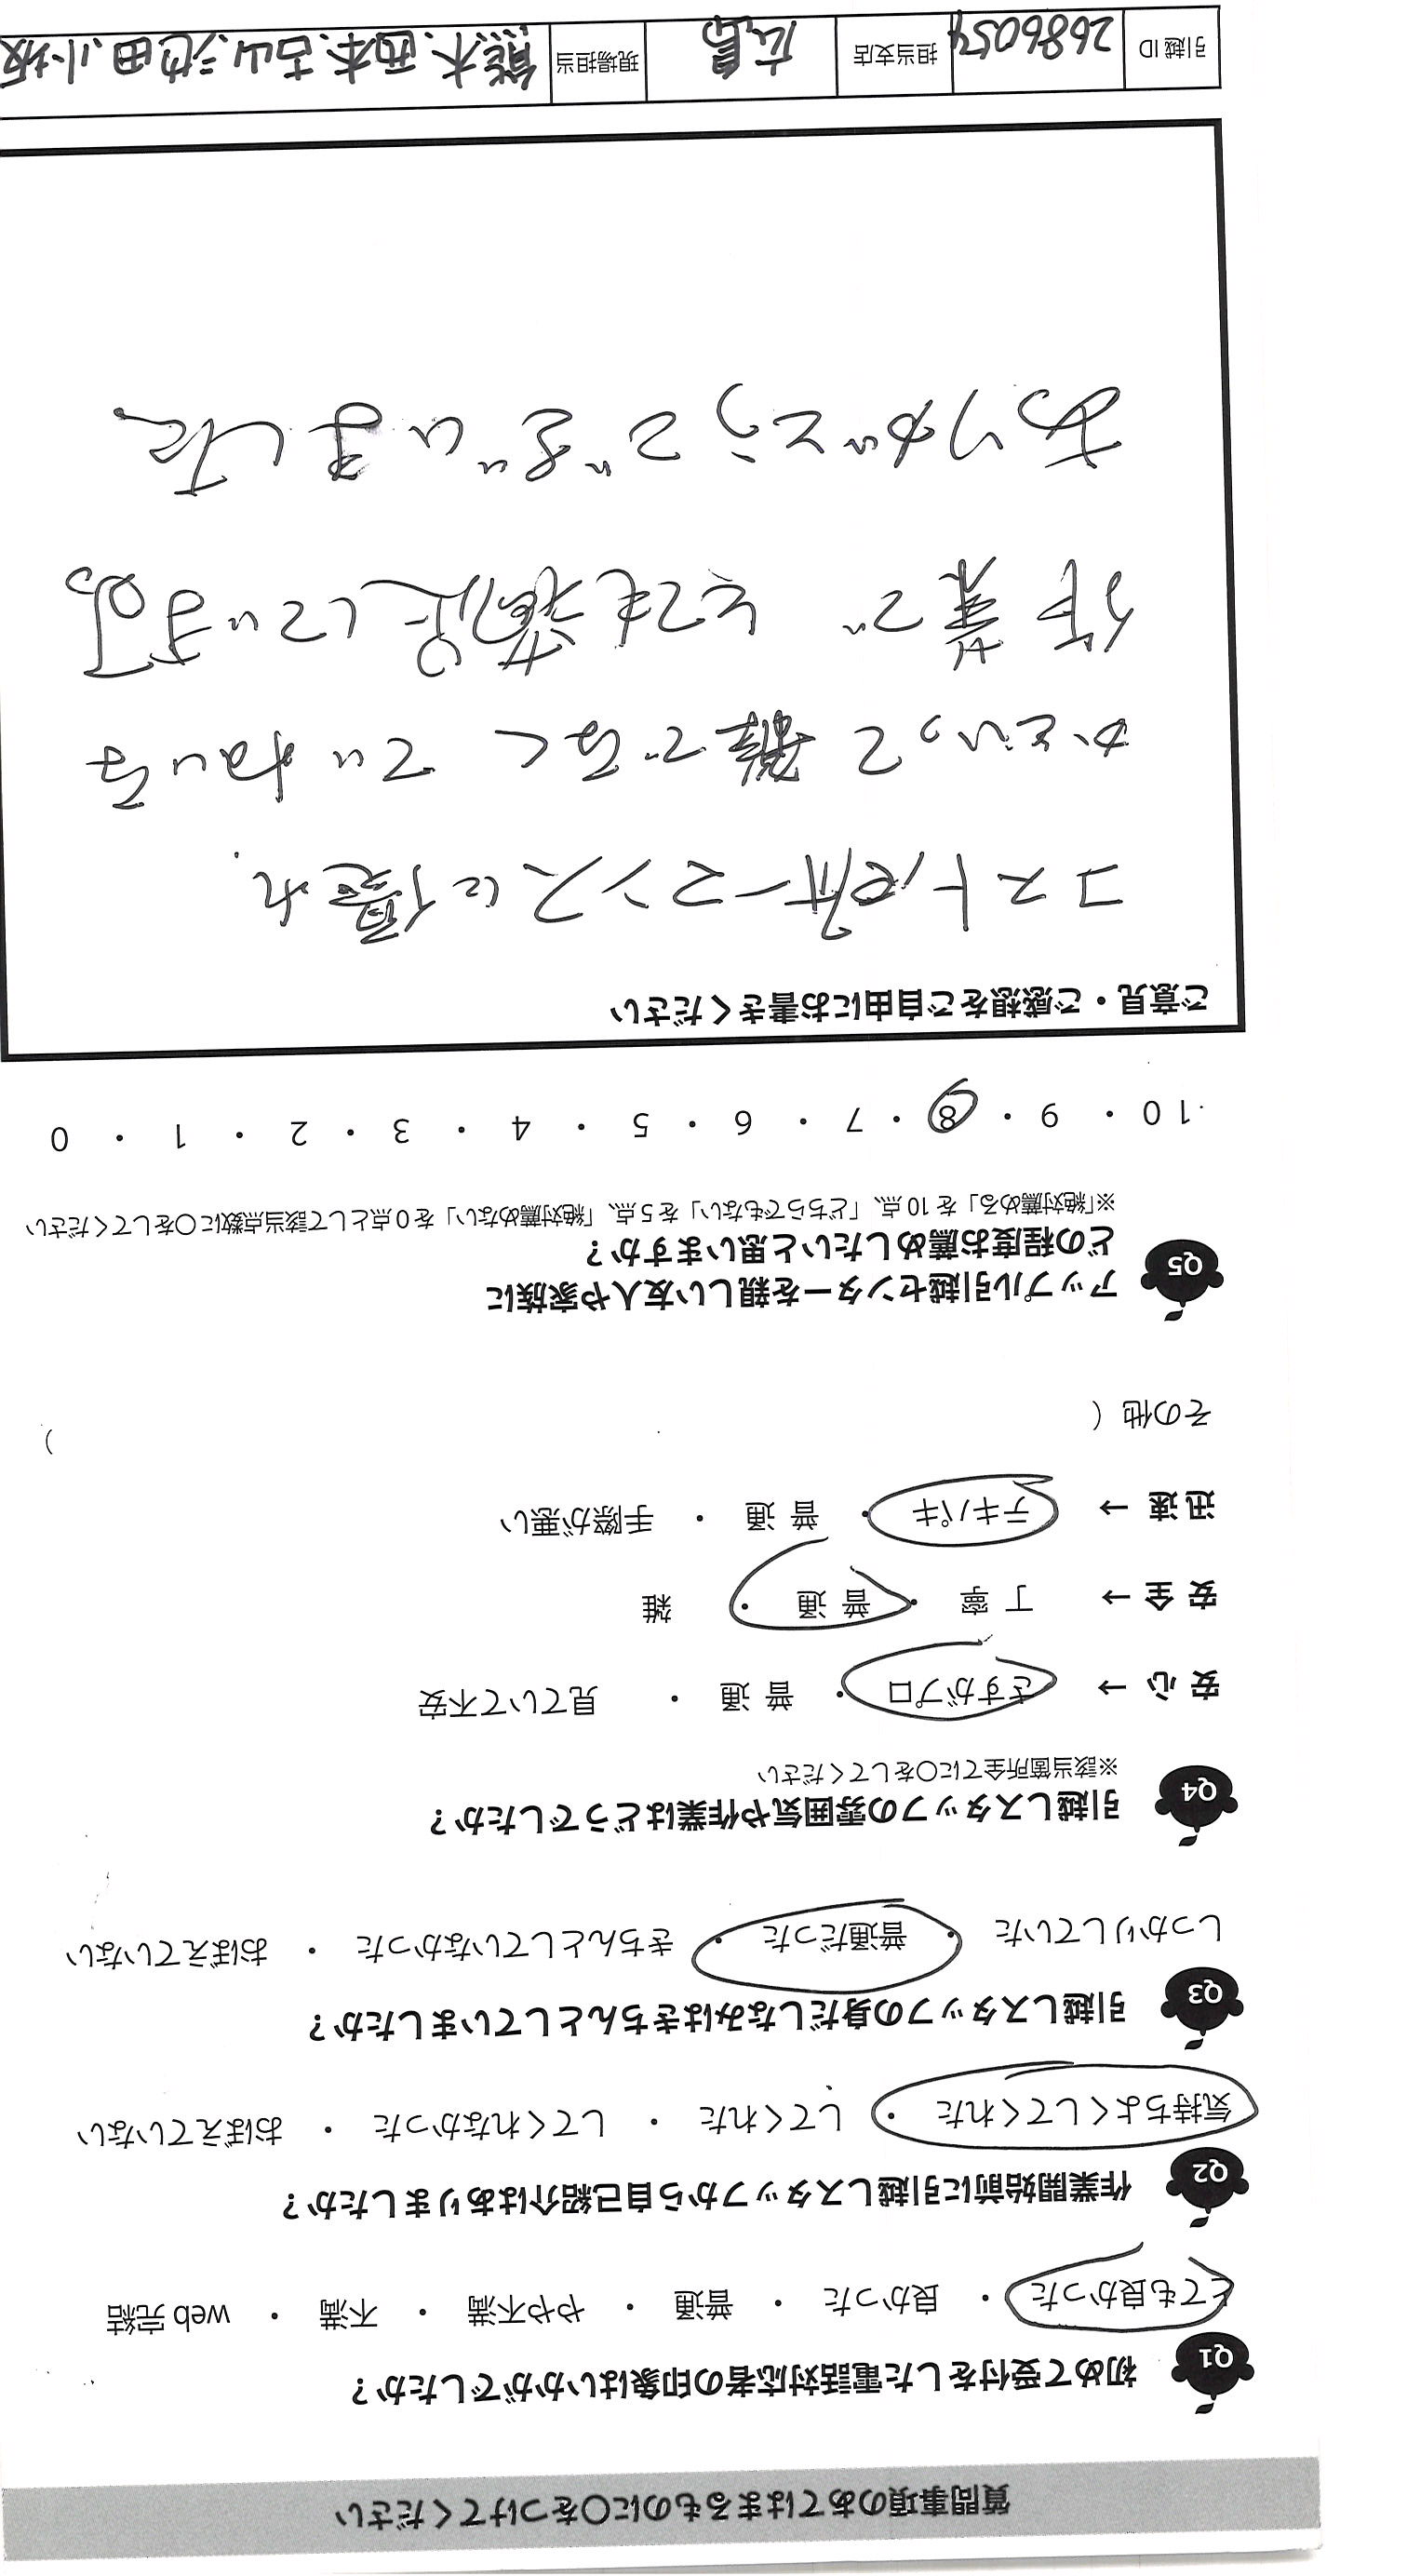 質問事項のあてはまるものに〇をつけてください
Q1 初めて受付をした電話対応者の印象はいかがでしたか？
とても良かった ・ 良かった ・ 普通 ・ やや不満 ・ 不満 ・ web 完結
Q2 作業開始前に引越しスタッフから自己紹介はありましたか？
気持ちよくしてくれた ・ してくれた ・ してくれなかった ・ おぼえていない
Q3 引越しスタッフの身だしなみはきちんとしていましたか？
しっかりしていた ・ 普通だった ・ きちんとしていなかった ・ おぼえていない
Q4 引越しスタッフの雰囲気や作業はどうでしたか？
※該当箇所全てに〇をしてください
安心 → さすがプロ ・ 普通 ・ 見ていて不安
安全 → 丁寧 ・ 普通 ・ 雑
迅速 → テキパキ ・ 普通 ・ 手際が悪い
その他 ( )
Q5 アップル引越センターを親しい友人や家族に
どの程度お薦めしたいと思いますか？
※「絶対薦める」を 10 点、「どちらでもない」を 5 点、「絶対薦めない」を 0 点として該当点数に〇をしてください
10 ・ 9 ・ 8 ・ 7 ・ 6 ・ 5 ・ 4 ・ 3 ・ 2 ・ 1 ・ 0
ご意見・ご感想をご自由にお書きください
コストパフォーマンスに優れ、
かといって雑でなく ていねいな
作業で とても満足しています。
ありがとうございました
引越ID 2686054 担当支店 広島 現場担当 熊木、西本、吉山、池田、小坂